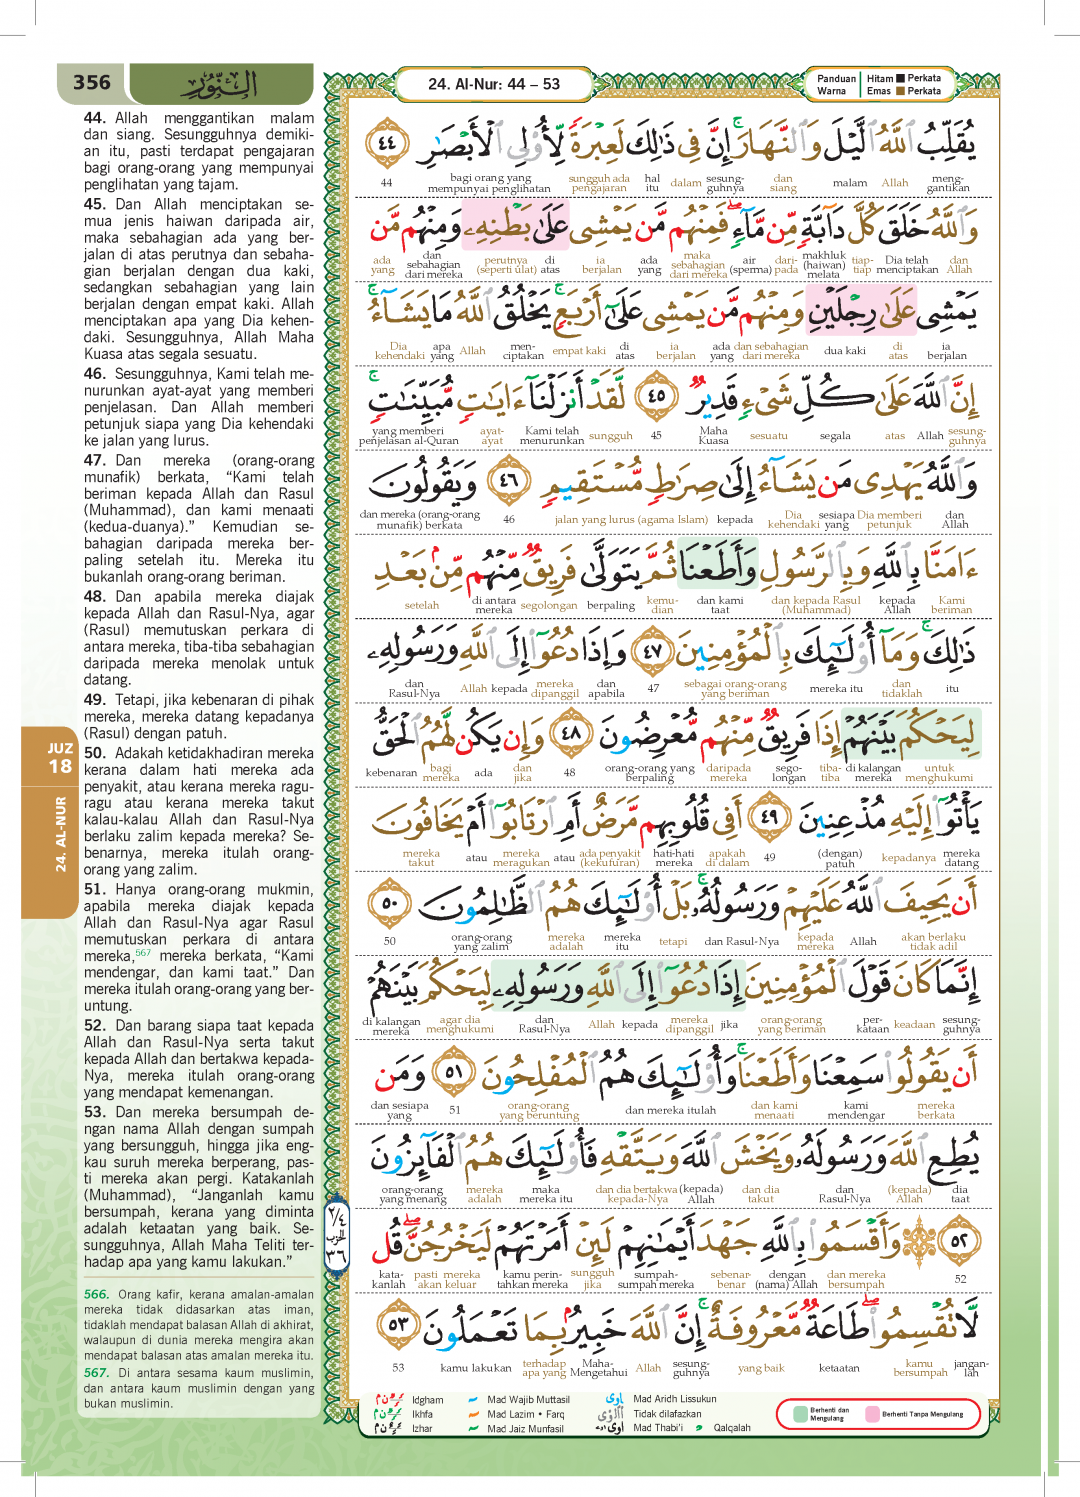 356
النُّور
24. Al-Nur: 44 – 53
Panduan Warna
Hitam ■ Perkata
Emas ■ Perkata
44. Allah menggantikan malam
dan siang. Sesungguhnya demiki-
an itu, pasti terdapat pengajaran
bagi orang-orang yang mempunyai
penglihatan yang tajam.
45. Dan Allah menciptakan se-
mua jenis haiwan daripada air,
maka sebahagian ada yang ber-
jalan di atas perutnya dan sebaha-
gian berjalan dengan dua kaki,
sedangkan sebahagian yang lain
berjalan dengan empat kaki. Allah
menciptakan apa yang Dia kehen-
daki. Sesungguhnya, Allah Maha
Kuasa atas segala sesuatu.
46. Sesungguhnya, Kami telah me-
nurunkan ayat-ayat yang memberi
penjelasan. Dan Allah memberi
petunjuk siapa yang Dia kehendaki
ke jalan yang lurus.
47. Dan mereka (orang-orang
munafik) berkata, “Kami telah
beriman kepada Allah dan Rasul
(Muhammad), dan kami menaati
(kedua-duanya).” Kemudian se-
bahagian daripada mereka ber-
paling setelah itu. Mereka itu
bukanlah orang-orang beriman.
48. Dan apabila mereka diajak
kepada Allah dan Rasul-Nya, agar
(Rasul) memutuskan perkara di
antara mereka, tiba-tiba sebahagian
daripada mereka menolak untuk
datang.
49. Tetapi, jika kebenaran di pihak
mereka, mereka datang kepadanya
(Rasul) dengan patuh.
50. Adakah ketidakhadiran mereka
kerana dalam hati mereka ada
penyakit, atau kerana mereka ragu-
ragu atau kerana mereka takut
kalau-kalau Allah dan Rasul-Nya
berlaku zalim kepada mereka? Se-
benarnya, mereka itulah orang-
orang yang zalim.
51. Hanya orang-orang mukmin,
apabila mereka diajak kepada
Allah dan Rasul-Nya agar Rasul
memutuskan perkara di antara
mereka,567 mereka berkata, “Kami
mendengar, dan kami taat.” Dan
mereka itulah orang-orang yang ber-
untung.
52. Dan barang siapa taat kepada
Allah dan Rasul-Nya serta takut
kepada Allah dan bertakwa kepada-
Nya, mereka itulah orang-orang
yang mendapat kemenangan.
53. Dan mereka bersumpah de-
ngan nama Allah dengan sumpah
yang bersungguh, hingga jika eng-
kau suruh mereka berperang, pas-
ti mereka akan pergi. Katakanlah
(Muhammad), “Janganlah kamu
bersumpah, kerana yang diminta
adalah ketaatan yang baik. Se-
sungguhnya, Allah Maha Teliti ter-
hadap apa yang kamu lakukan.”
566. Orang kafir, kerana amalan-amalan
mereka tidak didasarkan atas iman,
tidaklah mendapat balasan Allah di akhirat,
walaupun di dunia mereka mengira akan
mendapat balasan atas amalan mereka itu.
567. Di antara sesama kaum muslimin,
dan antara kaum muslimin dengan yang
bukan muslimin.
JUZ
18
24. AL-NUR
يُقَلِّبُ ٱللَّهُ ٱلَّيْلَ وَٱلنَّهَارَ ۚ إِنَّ فِى ذَٰلِكَ لَعِبْرَةً لِّأُو۟لِى ٱلْأَبْصَٰرِ ٤٤
meng-gantikan Allah malam dan siang sesung-guhnya dalam hal itu sungguh ada pengajaran bagi orang yang mempunyai penglihatan 44
وَٱللَّهُ خَلَقَ كُلَّ دَآبَّةٍ مِّن مَّآءٍ ۖ فَمِنْهُم مَّن يَمْشِى عَلَىٰ بَطْنِهِۦ وَمِنْهُم مَّن
dan Allah Dia telah menciptakan tiap-tiap makhluk (haiwan) melata dari-pada air (sperma) maka sebahagian dari mereka ada yang ia berjalan di atas perutnya (seperti ulat) dan sebahagian dari mereka ada yang
يَمْشِى عَلَىٰ رِجْلَيْنِ وَمِنْهُم مَّن يَمْشِى عَلَىٰٓ أَرْبَعٍ ۚ يَخْلُقُ ٱللَّهُ مَا يَشَآءُ ۚ
ia berjalan di atas dua kaki dan sebahagian dari mereka ada yang ia berjalan di atas empat kaki men-ciptakan Allah apa yang Dia kehendaki
إِنَّ ٱللَّهَ عَلَىٰ كُلِّ شَىْءٍ قَدِيرٌ ٤٥ لَّقَدْ أَنزَلْنَآ ءَايَٰتٍ مُّبَيِّنَٰتٍ ۚ
sesung-guhnya Allah atas segala sesuatu Maha Kuasa 45 sungguh Kami telah menurunkan ayat-ayat yang memberi penjelasan al-Quran
وَٱللَّهُ يَهْدِى مَن يَشَآءُ إِلَىٰ صِرَٰطٍ مُّسْتَقِيمٍ ٤٦ وَيَقُولُونَ
dan Allah Dia memberi petunjuk sesiapa yang Dia kehendaki kepada jalan yang lurus (agama Islam) 46 dan mereka (orang-orang munafik) berkata
ءَامَنَّا بِٱللَّهِ وَبِٱلرَّسُولِ وَأَطَعْنَا ثُمَّ يَتَوَلَّىٰ فَرِيقٌ مِّنْهُم مِّنۢ بَعْدِ
Kami beriman kepada Allah dan kepada Rasul (Muhammad) dan kami taat kemu-dian berpaling segolongan di antara mereka setelah
ذَٰلِكَ ۚ وَمَآ أُو۟لَٰٓئِكَ بِٱلْمُؤْمِنِينَ ٤٧ وَإِذَا دُعُوٓا۟ إِلَى ٱللَّهِ وَرَسُولِهِۦ
itu dan tidaklah mereka itu sebagai orang-orang yang beriman 47 dan apabila mereka dipanggil kepada Allah dan Rasul-Nya
لِيَحْكُمَ بَيْنَهُمْ إِذَا فَرِيقٌ مِّنْهُم مُّعْرِضُونَ ٤٨ وَإِن يَكُن لَّهُمُ ٱلْحَقُّ
untuk menghukumi di kalangan mereka tiba-tiba sego-longan daripada mereka orang-orang yang berpaling 48 dan jika ada bagi mereka kebenaran
يَأْتُوٓا۟ إِلَيْهِ مُذْعِنِينَ ٤٩ أَفِى قُلُوبِهِم مَّرَضٌ أَمِ ٱرْتَابُوٓا۟ أَمْ يَخَافُونَ
mereka datang kepadanya (dengan) patuh 49 apakah di dalam hati-hati mereka ada penyakit (kekufuran) atau mereka meragukan atau mereka takut
أَن يَحِيفَ ٱللَّهُ عَلَيْهِمْ وَرَسُولُهُۥ ۚ بَلْ أُو۟لَٰٓئِكَ هُمُ ٱلظَّٰلِمُونَ ٥٠
akan berlaku tidak adil Allah kepada mereka dan Rasul-Nya tetapi mereka itu mereka adalah orang-orang yang zalim 50
إِنَّمَا كَانَ قَوْلَ ٱلْمُؤْمِنِينَ إِذَا دُعُوٓا۟ إِلَى ٱللَّهِ وَرَسُولِهِۦ لِيَحْكُمَ بَيْنَهُمْ
sesung-guhnya keadaan per-kataan orang-orang yang beriman jika mereka dipanggil kepada Allah dan Rasul-Nya agar dia menghukumi di kalangan mereka
أَن يَقُولُوا۟ سَمِعْنَا وَأَطَعْنَا ۚ وَأُو۟لَٰٓئِكَ هُمُ ٱلْمُفْلِحُونَ ٥١ وَمَن
mereka berkata kami mendengar dan kami menaati dan mereka itulah orang-orang yang beruntung 51 dan sesiapa yang
يُطِعِ ٱللَّهَ وَرَسُولَهُۥ وَيَخْشَ ٱللَّهَ وَيَتَّقْهِ فَأُو۟لَٰٓئِكَ هُمُ ٱلْفَآئِزُونَ
dia taat (kepada) Allah dan Rasul-Nya dan dia takut (kepada) Allah dan dia bertakwa kepada-Nya maka mereka itu mereka adalah orang-orang yang menang
٥٢ ۞ وَأَقْسَمُوا۟ بِٱللَّهِ جَهْدَ أَيْمَٰنِهِمْ لَئِنْ أَمَرْتَهُمْ لَيَخْرُجُنَّ ۖ قُل
52 dan mereka bersumpah dengan (nama) Allah sebenar-benar sumpah-sumpah mereka sungguh jika kamu perin-tahkan mereka pasti mereka akan keluar kata-kanlah
لَّا تُقْسِمُوا۟ ۖ طَاعَةٌ مَّعْرُوفَةٌ ۚ إِنَّ ٱللَّهَ خَبِيرٌۢ بِمَا تَعْمَلُونَ ٥٣
jangan-lah kamu bersumpah ketaatan yang baik sesung-guhnya Allah Maha-Mengetahui terhadap apa yang kamu lakukan 53
٢/٤
الحزب
٣٦
Idgham
Ikhfa
Izhar
Mad Wajib Muttasil
Mad Lazim • Farq
Mad Jaiz Munfasil
Mad Aridh Lissukun
Tidak dilafazkan
Mad Thabi'i
Qalqalah
Berhenti dan Mengulang
Berhenti Tanpa Mengulang